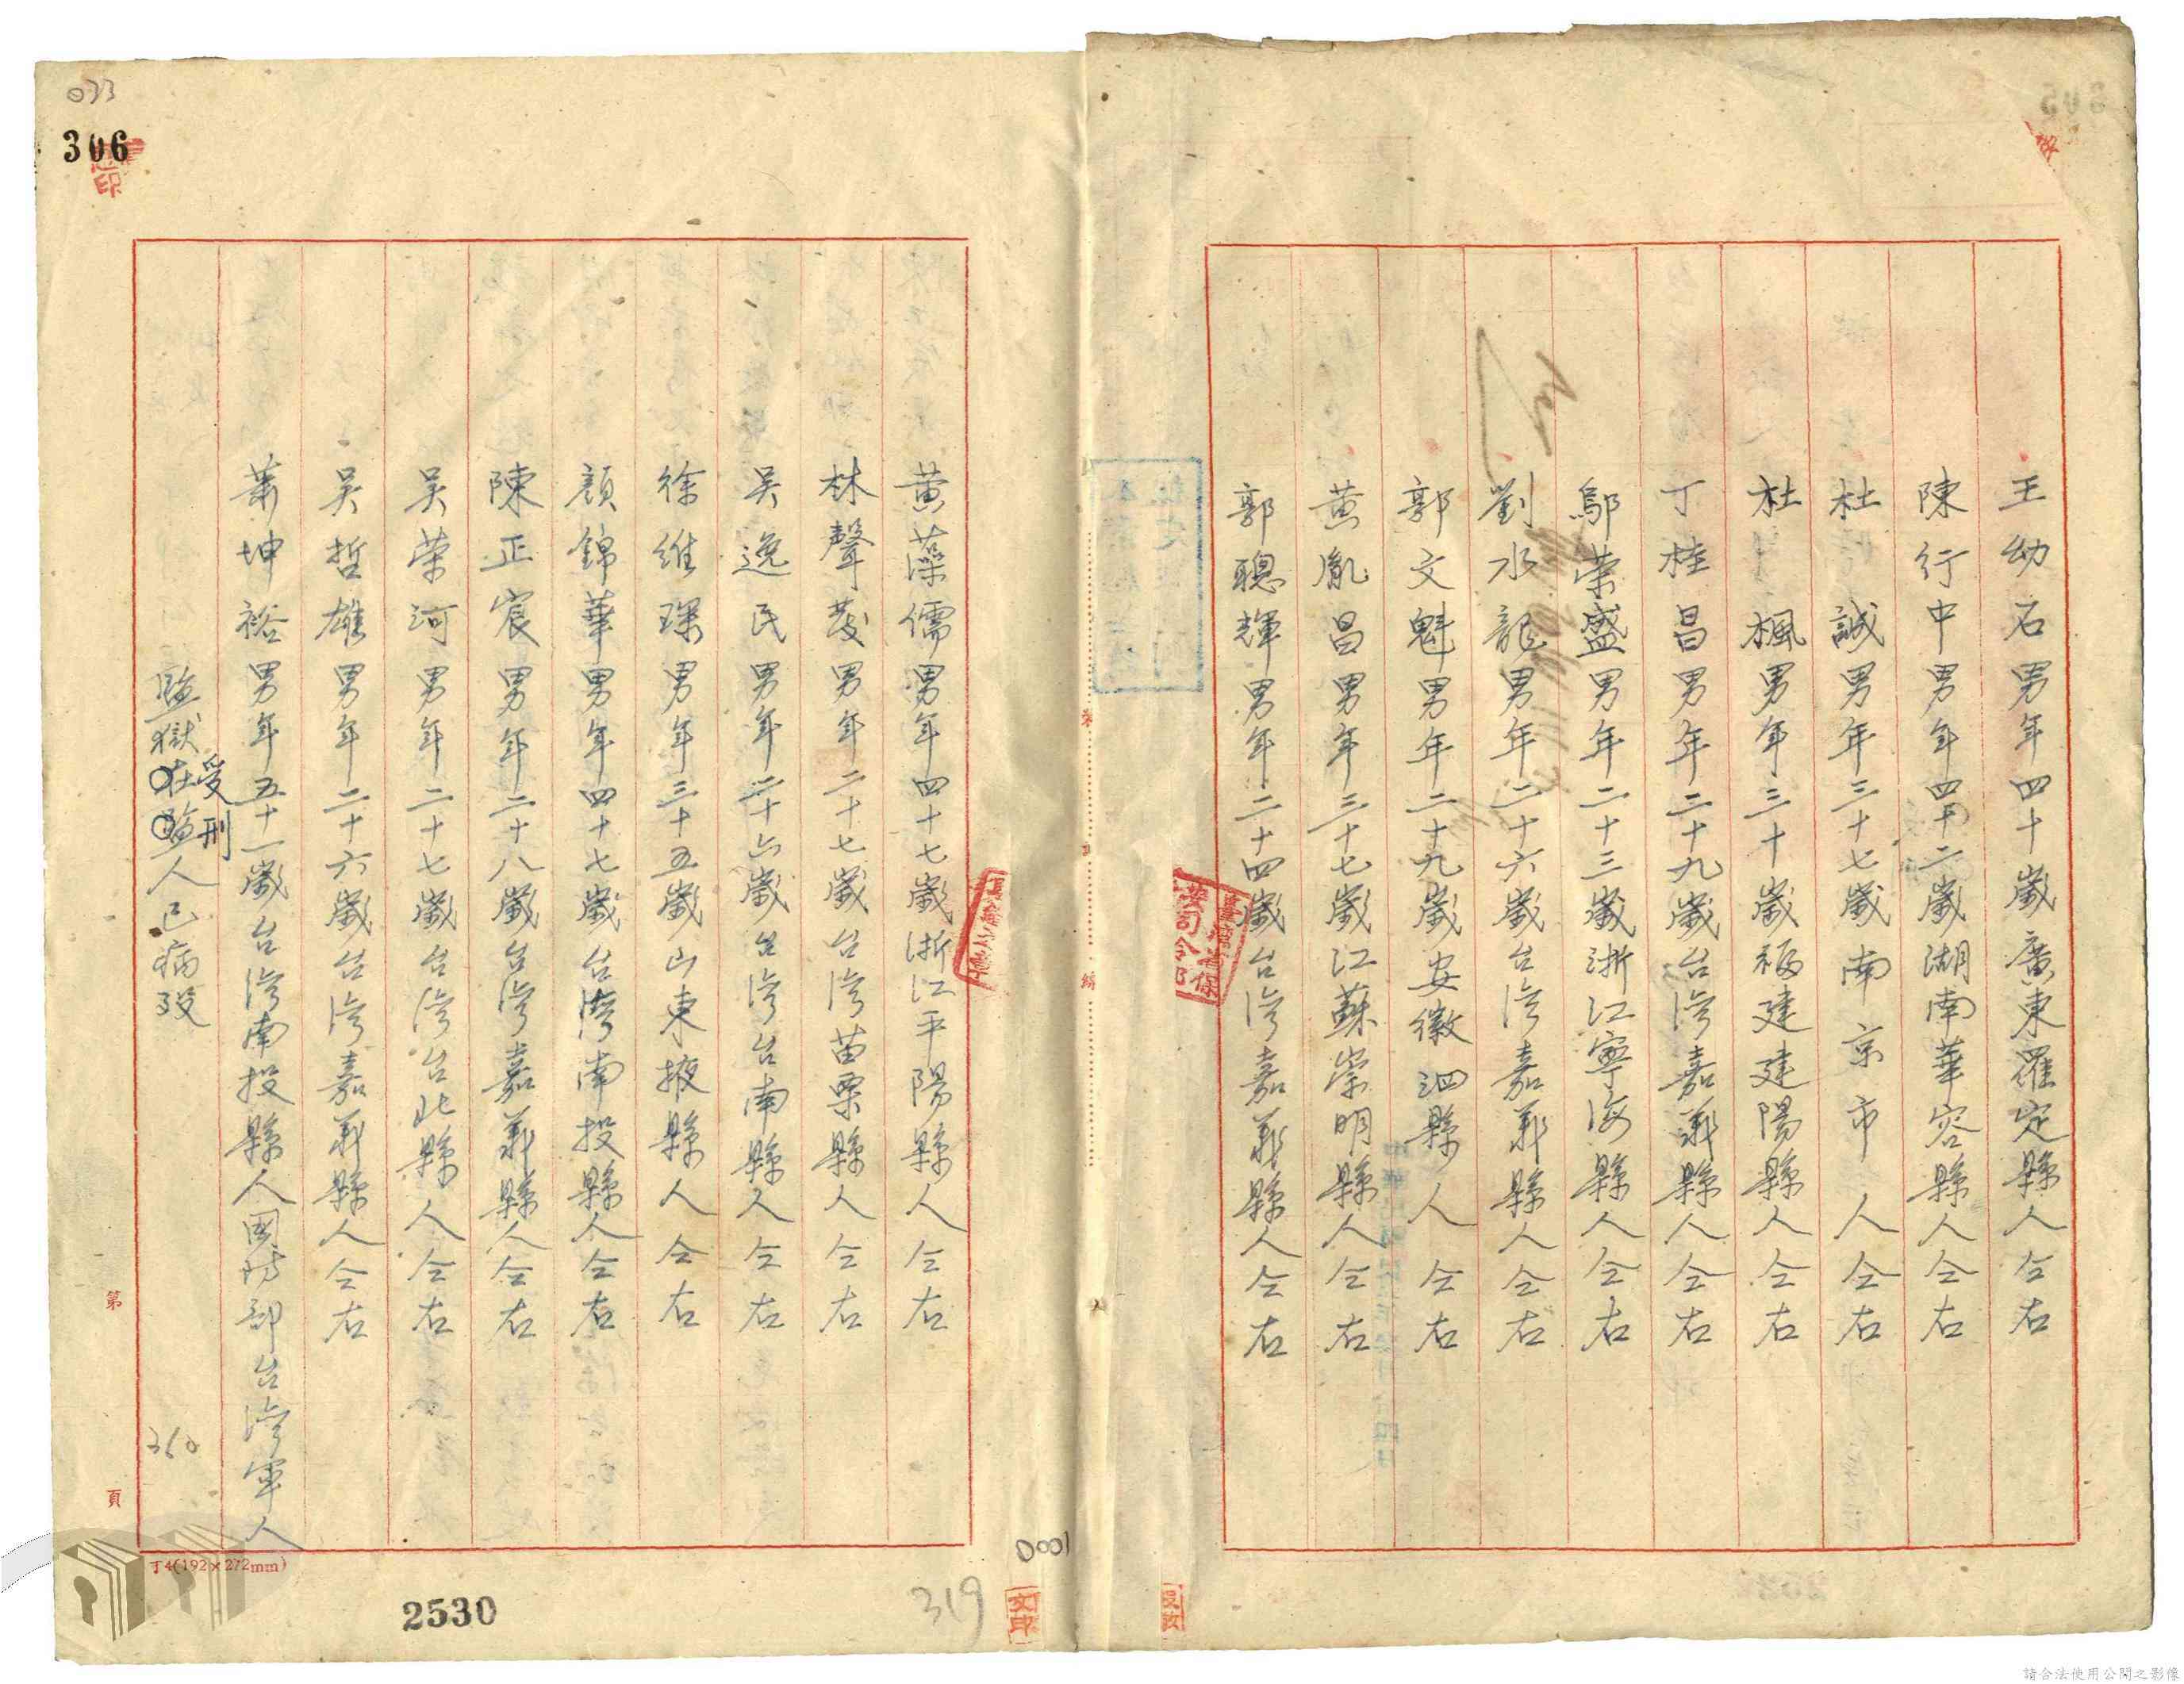 王幼石男年四十歲廣東羅定縣人仝右
陳行中男年四十二歲湖南華容縣人仝右
杜誠男年三十七歲南京市人仝右
杜楓男年三十歲福建建陽縣人仝右
丁桂昌男年二十九歲台湾嘉義縣人仝右
鄔荣盛男年二十三歲浙江寧海縣人仝右
劉水龍男年二十六歲台湾嘉義縣人仝右
郭文魁男年二十九歲安徽泗縣人仝右
黄胤昌男年三十七歲江蘇崇明縣人仝右
郭聰輝男年二十四歲台湾嘉義縣人仝右
黄藻儒男年四十七歲浙江平陽縣人仝右
林聲發男年二十七歲台湾苗栗縣人仝右
吴逸民男年二十六歲台湾台南縣人仝右
徐维琛男年三十五歲山東掖縣人仝右
顏錦華男年四十七歲台灣南投縣人仝右
陳正宸男年二十八歲台湾嘉義縣人仝右
吴荣河男年二十七歲台湾台北縣人仝右
吴哲雄男年二十六歲台湾嘉義縣人仝右
萧坤裕男年五十一歲台湾南投縣人國防部台灣軍人
監獄受刑人已病殁
033
306
第 頁
360
丁4(192×272mm)
2530
319
0001
請合法使用公開之影像